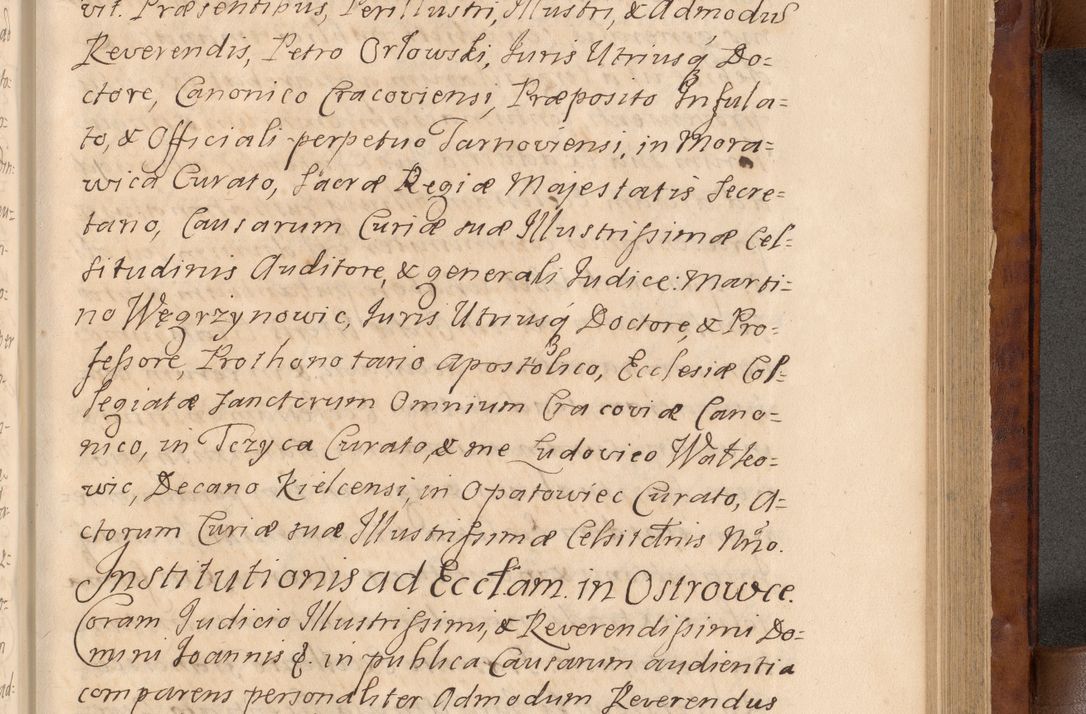 vit. Præsentibus, Perillustri, Illustri, & Admodu
Reverendis, Petro Orłowski, Iuris Utriusq́ Do=
ctore, Canonico Cracoviensi, Præposito Infula=
to, & Officiali perpetuo Tarnoviensi, in Mora=
wica Curato, Sacræ Regiæ Majestatis Secre=
tario, Causarum Curiæ suæ Illustrissimæ Cel=
situdinis Auditore, & generali Iudice: Marti=
no Węgrzynowic, Iuris Utriusq́ Doctore, & Pro=
fessore, Prothonotario Apostolico, Ecclesiæ Col=
legiatæ Sanctorum Omnium Cracoviæ Cano=
nico, in Tczyca Curato, & me Ludovico Watko=
wic, Decano Kielcensi, in Opatowiec Curato, A=
ctorum Curiæ suæ Illustrissimæ Celsitdnis Nrio.
Institutionis ad Eccłam. in Ostrowce.
Coram Iudicio Illustrissimi, & Reverendissimi Do=
mini Ioannis &. in publica Causarum audientia
comparens personaliter Admodum Reverendus